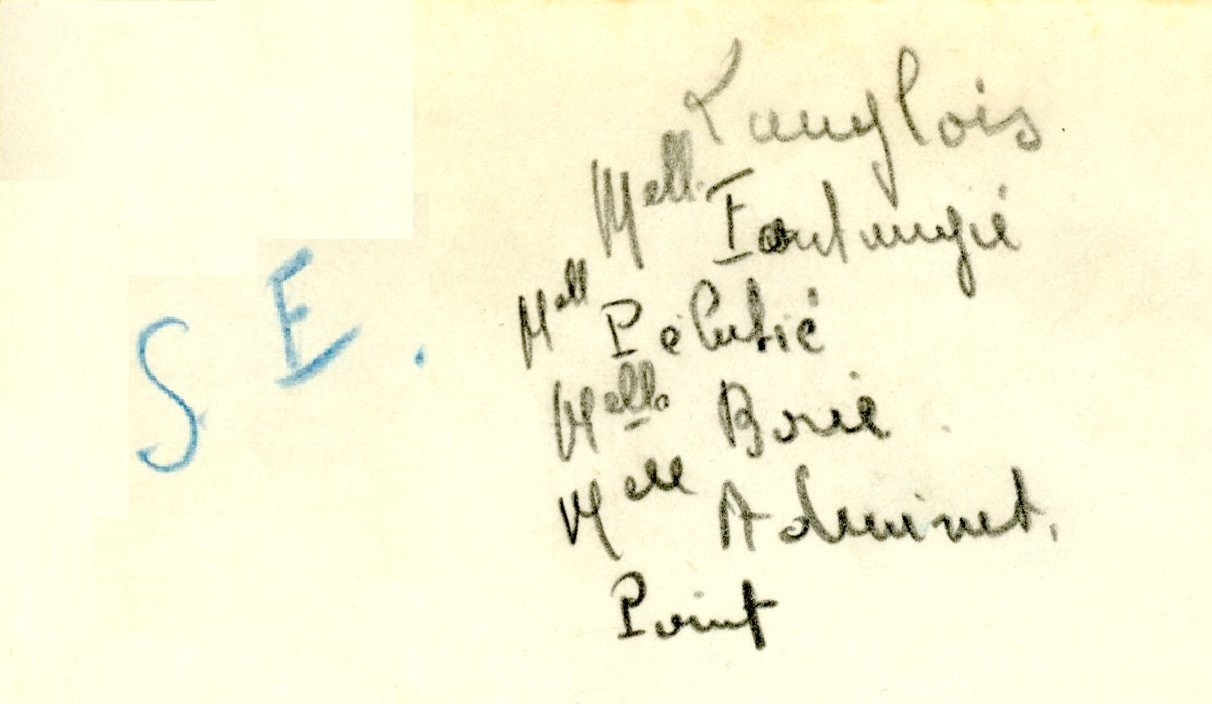 S E.
Langlois
Mell. Fontangié
Mell Pélutié
Melle Borie
Melle Adminet.
Point